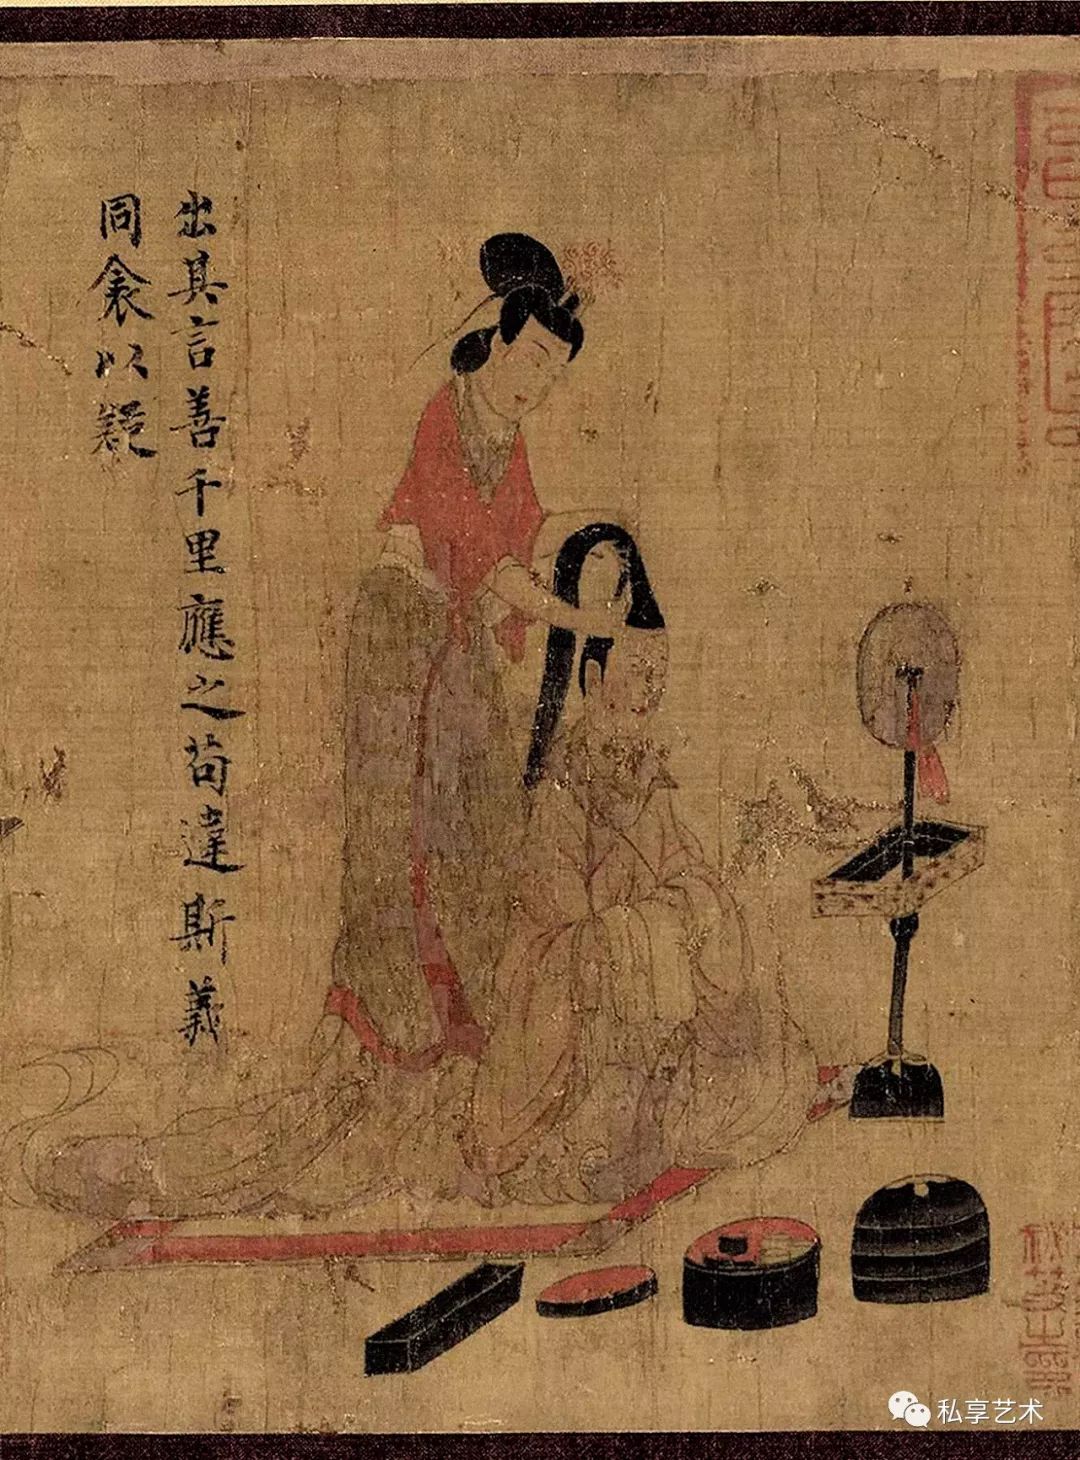 出其言善千里應之苟違斯義
同衾以疑
私享艺术